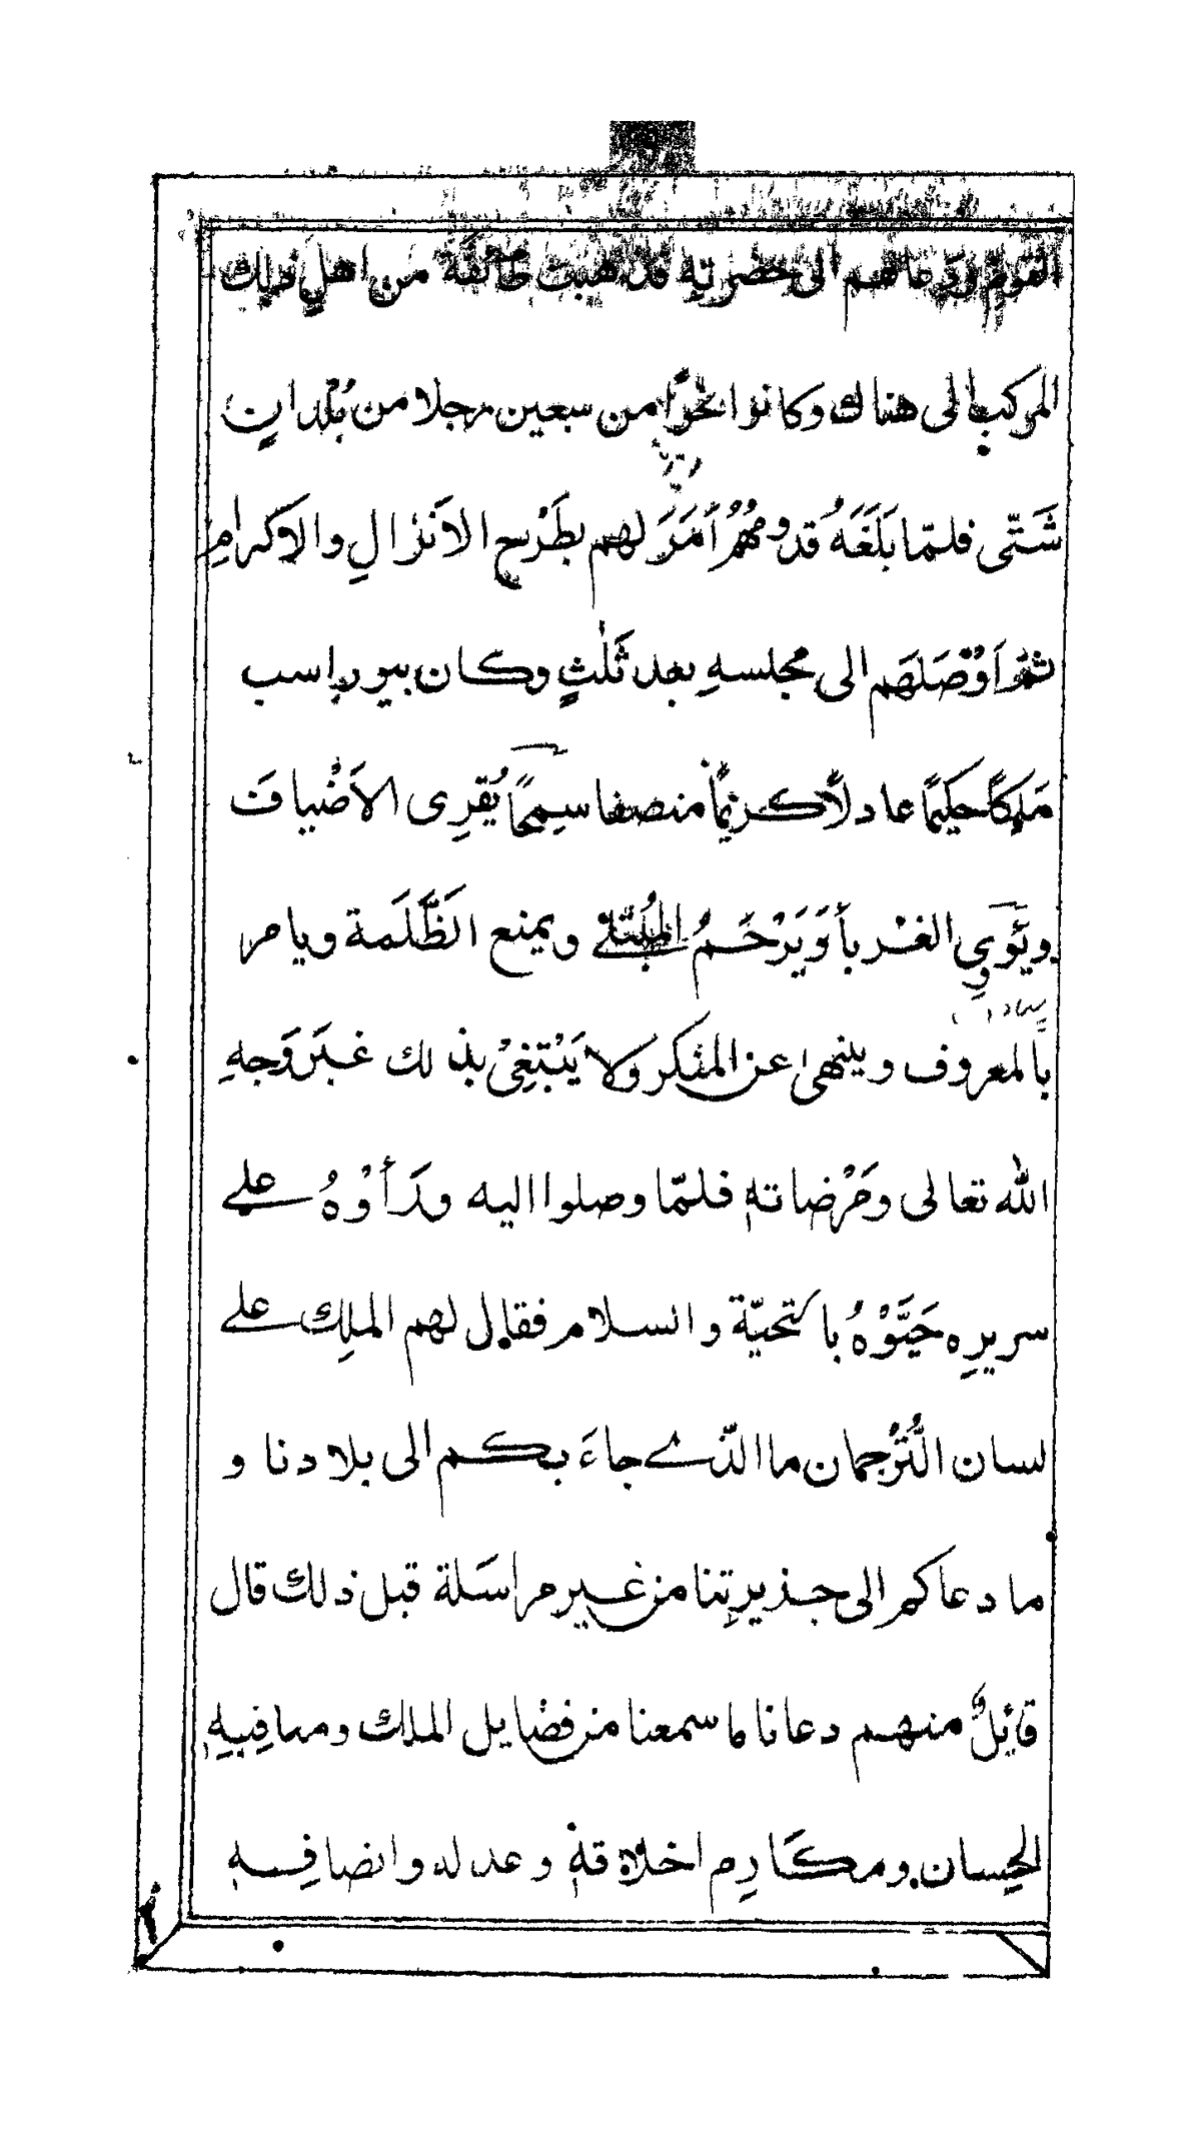 القومِ ودعاهم الى حضرتِهِ قد ذهبت طائفة من اهلِ ذلك
المركب الى هناك وكانوا نحوًا من سبعين رجلا من بُلْدانٍ
شَتّٰى فلمّا بَلَغَهُ قدومُهُمْ أَمَرَ لهم بطَرْحِ الاَنزالِ والاكرامِ
ثم اَوْصَلَهَم الى مجلسهِ بعد ثَلٰثٍ وكان بيوراسب
مَلِكًا حكيمًا عادلًا كريمًا منصفا سِمحًا يُقرِى الاَضْيافَ
ويَؤوِي الغْربأَ وَيَرْحَمُ المُبْتَلٰے ويمنع الظَّلَمة ويامر
بالمعروف وينهىٰ عن المنكر ولا يَبْتَغِىْ بذلك غَيَر وَجهِ
الله تعالى ومَرْضاتهٖ فلمّا وصلوا اليه ورَأوْهُ علے
سريرِه حَيَّوْهُ بالتحيّة والسلام فقال لهم الملِك علے
لسان التُّرْجمان ما الّذے جاءَ بكم الى بلادنا و
ما دعاكم الى جذيرتِنا من غير مراسَلة قبل ذلك قال
قائِلٌ منهم دعانا ما سمعنا من فضايل الملك ومناقِبهِ
الحِسان ومكَارِم اخلاقهٖ وعدله وانصافِهٖ